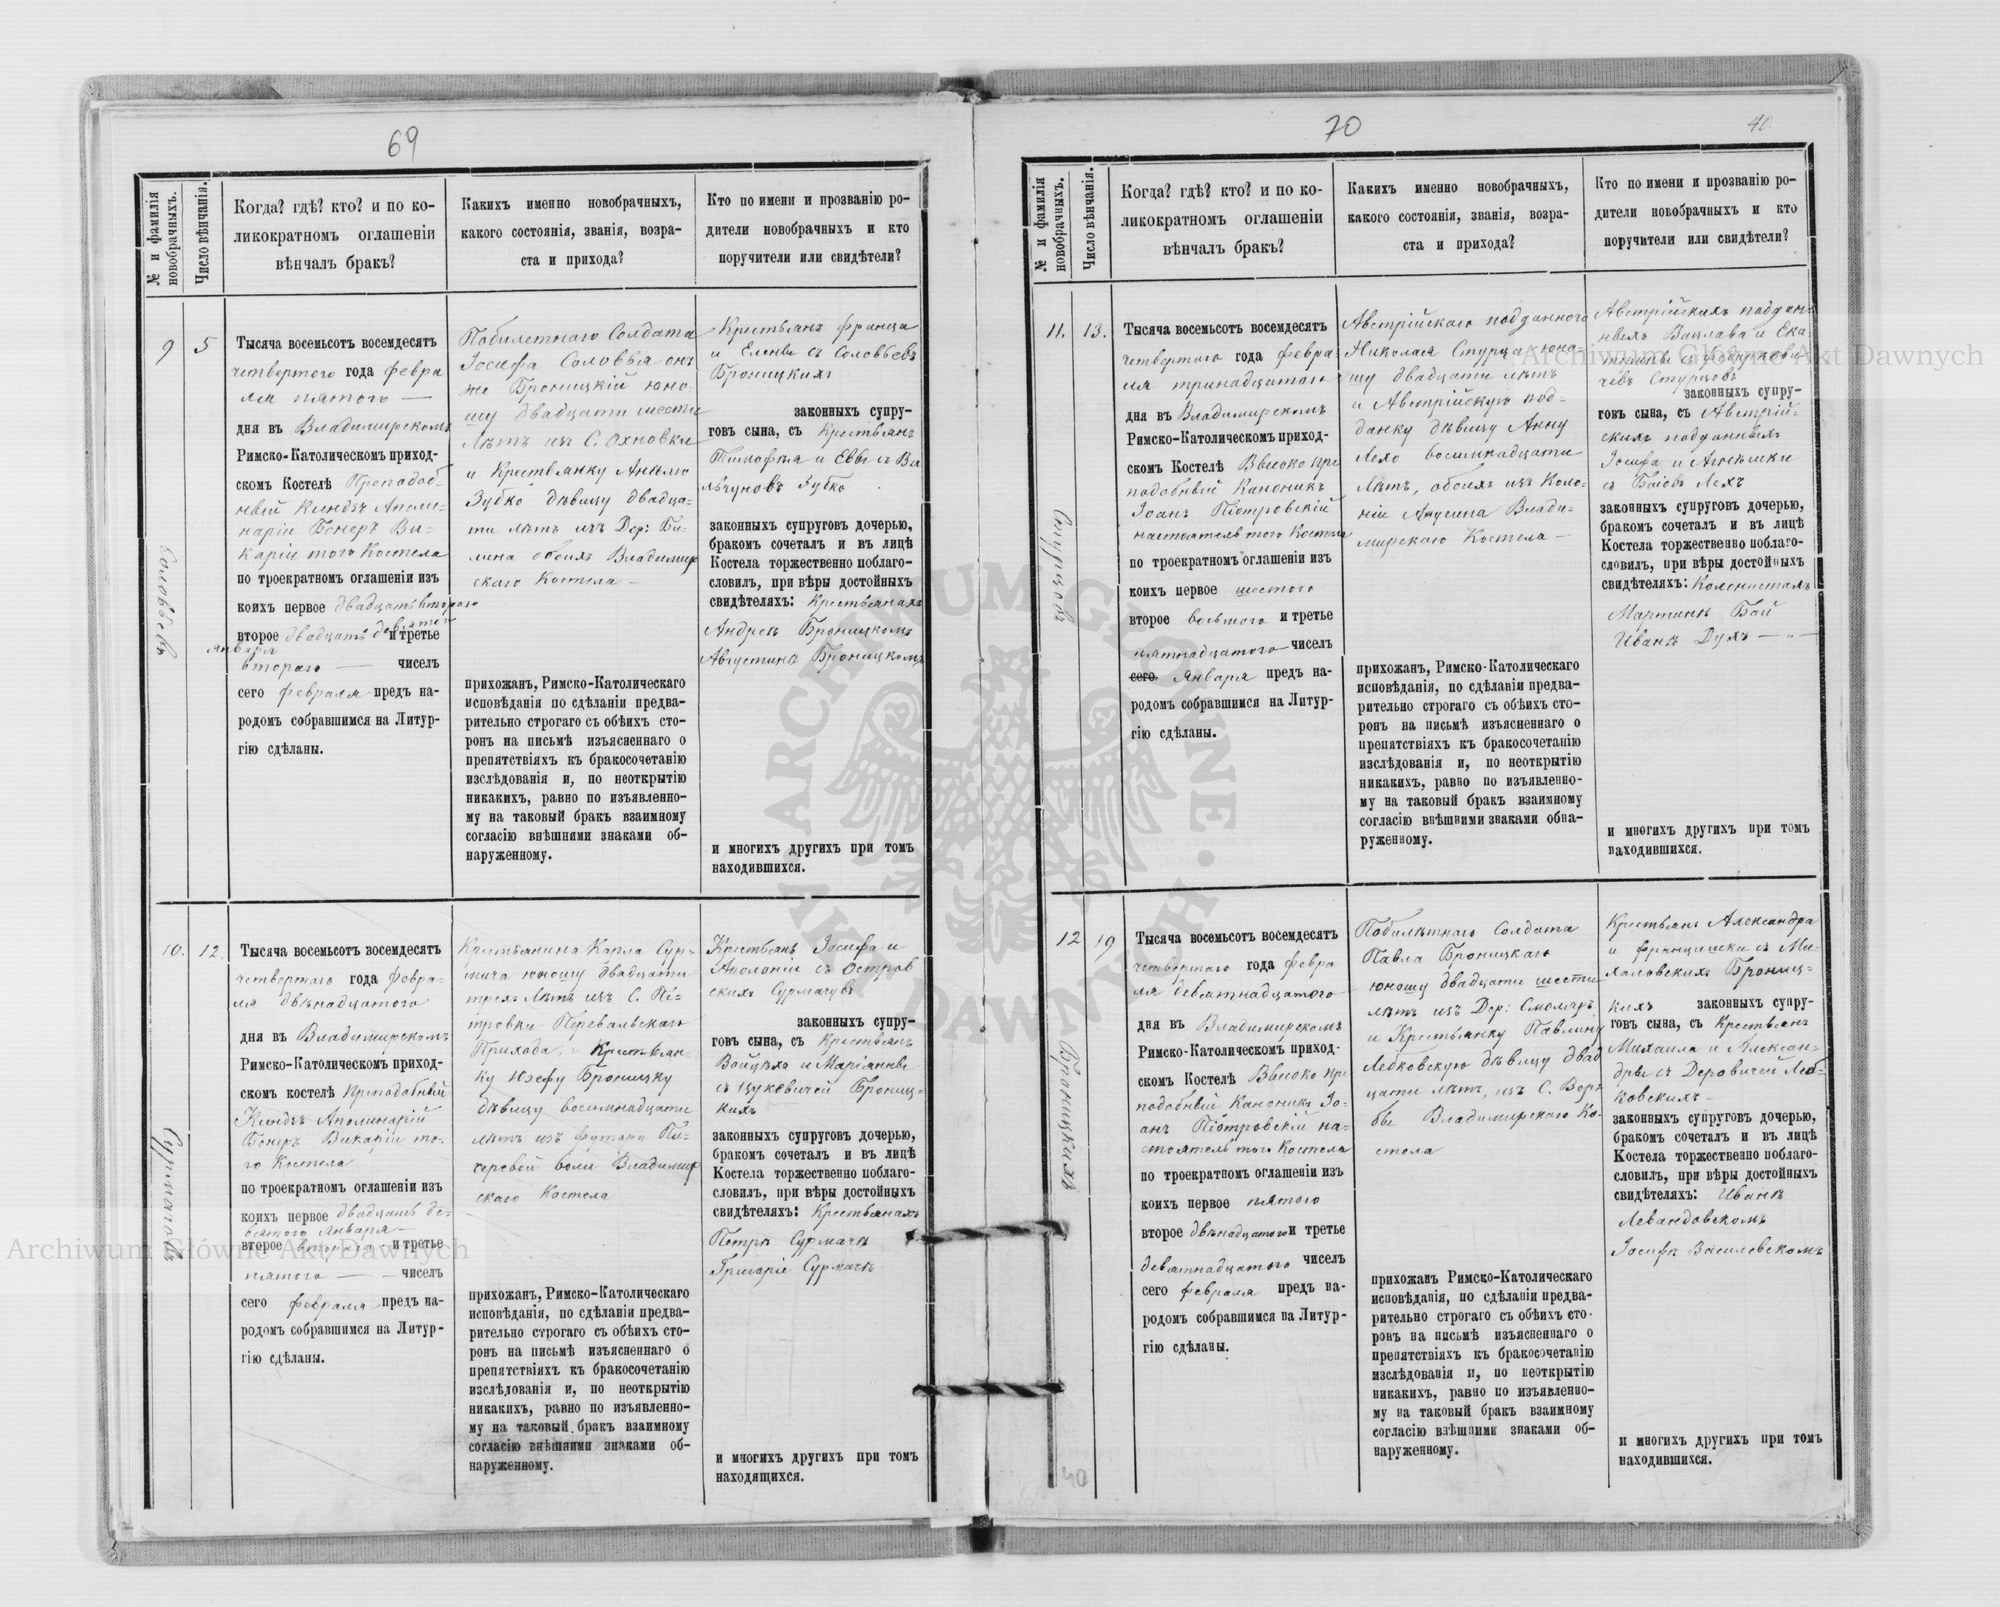 69
№ и фамилія новобрачныхъ.
Число вѣнчанія.
Когда? гдѣ? кто? и по ко-
ликократномъ оглашеніи
вѣнчалъ бракъ?
Какихъ именно новобрачныхъ,
какого состоянія, званія, возра-
ста и прихода?
Кто по имени и прозванію ро-
дители новобрачныхъ и кто
поручители или свидѣтели?
9
Соловьевъ
5
Тысяча восемьсотъ восемдесятъ
четвертого года февра
ля пятого —
дня въ Владимирскомъ
Римско-Католическомъ приход-
скомъ Костелѣ Преподоб-
ный Ксиндзъ Аполи-
нарій Бенеръ Ви-
карій того Костела
по троекратномъ оглашеніи изъ
коихъ первое двадцать второго
второе двадцать девятого и третье
Января
второго — чиселъ
сего февраля предъ на-
родомъ собравшимся на Литур-
гію сдѣланы.
Побилетнаго Солдата
Іосифа Соловья онъ
же Броницкій юно-
шу двадцати шести
лѣтъ изъ С. Охновки
и Крестьянку Анелю
Зубко дѣвицу двадца-
ти лѣтъ изъ Дер:
обоихъ Владимир
скаго Костела —
прихожанъ, Римско-Католическаго
исповѣданія, по сдѣланіи предва-
рительно строгаго съ обѣихъ сто-
ронъ на письмѣ изъясненнаго о
препятствіяхъ къ бракосочетанію
изслѣдованія и, по неоткрытію
никакихъ, равно по изъявленно-
му на таковый бракъ взаимному
согласію внѣшними знаками об-
наруженному.
Крестьянъ Франца
и Елены съ Соловьевъ
Броницкихъ
законныхъ супру-
говъ сына, съ Крестьянъ
Тимофея и Еввы съ
Зубко
законныхъ супруговъ дочерью,
бракомъ сочеталъ и въ лицѣ
Костела торжественно поблаго-
словилъ, при вѣры достойныхъ
свидѣтеляхъ: Крестьянахъ
Андреѣ Броницкомъ
Августинѣ Броницкомъ
и многихъ другихъ при томъ
находившихся.
10.
Сурмачовъ
12.
Тысяча восемьсотъ восемдесятъ
четвертаго года февра-
ля двѣнадцатого
дня въ Владимирскомъ
Римско-Католическомъ приход-
скомъ костелѣ Преподобный
Ксиндзъ Аполинарій
Бенеръ Викарій то-
го Костела
по троекратномъ оглашеніи изъ
коихъ первое двадцать де-
вятого Января —
второе второго и третье
пятого — — чиселъ
сего февраля предъ на-
родомъ собравшимся на Литур-
гію сдѣланы.
Крестьянина Карла Сур-
мача юношу двадцати
трехъ лѣтъ изъ С. Пе-
тровки Перевальскаго
Прихода, и Крестьян-
ку Юзефу Броницку
дѣвицу восемнадцати
лѣтъ изъ футора Пи-
черовой воли Владимир
скаго Костела
прихожанъ, Римско-Католическаго
исповѣданія, по сдѣланіи предва-
рительно строгаго съ обѣихъ сто-
ронъ на письмѣ изъясненнаго о
препятствіяхъ къ бракосочетанію
изслѣдованія и, по неоткрытію
никакихъ, равно по изъявленно-
му на таковый бракъ взаимному
согласію внѣшними знаками об-
наруженному.
Крестьянъ Іосифа и
Аполоніи съ Остров
скихъ Сурмачувъ
законныхъ супру-
говъ сына, съ Крестьянъ
Войцѣха и Маріанны
съ Цукевичей Брониц-
кихъ
законныхъ супруговъ дочерью,
бракомъ сочеталъ и въ лицѣ
Костела торжественно поблаго-
словилъ, при вѣры достойныхъ
свидѣтеляхъ: Крестьянахъ
Петрѣ Сурмачѣ
Григоріе Сурмачѣ
и многихъ другихъ при томъ
находящихся.
70
40.
№ и фамилія новобрачныхъ.
Число вѣнчанія.
Когда? гдѣ? кто? и по ко-
ликократномъ оглашеніи
вѣнчалъ бракъ?
Какихъ именно новобрачныхъ,
какого состоянія, званія, возра-
ста и прихода?
Кто по имени и прозванію ро-
дители новобрачныхъ и кто
поручители или свидѣтели?
11.
Стурцовъ
13.
Тысяча восемьсотъ восемдесятъ
четвертого года февра-
ля тринадцатого
дня въ Владимирскомъ
Римско-Католическомъ приход-
скомъ Костелѣ Высоко пре
подобный Каноникъ
Іоанъ Піотровскій
настоятель того Костела
по троекратномъ оглашеніи изъ
коихъ первое шестого
второе восьмого и третье
пятнадцатого чиселъ
сего. Января предъ на-
родомъ собравшимся на Литур-
гію сдѣланы.
Австрійскаго подданного
Николая Стурца юно-
шу двадцати лѣтъ
и Австрійскую под-
данку дѣвицу Анну
Лехо восемнадцати
лѣтъ, обоихъ изъ Коло-
ніи Анусина Влади-
мирскаго Костела —
прихожанъ, Римско-Католическаго
исповѣданія, по сдѣланіи предва-
рительно строгаго съ обѣихъ сто-
ронъ на письмѣ изъясненнаго о
препятствіяхъ къ бракосочетанію
изслѣдованія и, по неоткрытію
никакихъ, равно по изъявленно-
му на таковый бракъ взаимному
согласію внѣшними знаками обна-
руженному.
Австрійскихъ поддан-
ныхъ Вацлава и Ека-
терины
Стурцовъ
законныхъ супру-
говъ сына, съ Австрій-
скихъ подданныхъ
Іосифа и Агнѣшки
съ Баіовъ Лехъ
законныхъ супруговъ дочерью,
бракомъ сочеталъ и въ лицѣ
Костела торжественно поблаго-
словилъ, при вѣры достойныхъ
свидѣтеляхъ: Колонистахъ
Мартинѣ Бай
Иванѣ Духъ — „ —
и многихъ другихъ при томъ
находившихся.
12
Броницкихъ
19
Тысяча восемьсотъ восемдесятъ
четвертаго года февра
ля девятнадцатого
дня въ Владимирскомъ
Римско-Католическомъ приход-
скомъ Костелѣ Высоко пре
подобный Каноникъ Іо-
анъ Піотровскій на-
стоятель того Костела
по троекратномъ оглашеніи изъ
коихъ первое пятого
второе двѣнадцатого и третье
девятнадцатого чиселъ
сего февраля предъ на-
родомъ собравшимся на Литур-
гію сдѣланы.
Побилѣтнаго Солдата
Павла Броницкаго
юношу двадцати шести
лѣтъ изъ Дер:
и Крестьянку Павлину
Лебковскую дѣвицу двад
цати лѣтъ, изъ С. Вер-
бы Владимирскаго Ко-
стела
прихожанъ Римско-Католическаго
исповѣданія, по сдѣланіи предва-
рительно строгаго съ обѣихъ сто-
ронъ на письмѣ изъясненнаго о
препятствіяхъ къ бракосочетанію
изслѣдованія и, по неоткрытію
никакихъ, равно по изъявленно-
му на таковый бракъ взаимному
согласію внѣшними знаками об-
наруженному.
Крестьянъ Александра
и Францишки съ Ми-
халовскихъ Брониц-
кихъ законныхъ супру-
говъ сына, съ Крестьянъ
Михаила и Алексан-
дры съ Деровичей Леб-
ковскихъ —
законныхъ супруговъ дочерью,
бракомъ сочеталъ и въ лицѣ
Костела торжественно поблаго-
словилъ, при вѣры достойныхъ
свидѣтеляхъ: Иванѣ
Левандовскомъ
Іосифѣ Василевскомъ
и многихъ другихъ при томъ
находившихся.
40
Archiwum Główne Akt Dawnych
Archiwum Główne Akt Dawnych
ARCHIWUM GŁÓWNE AKT DAWNYCH